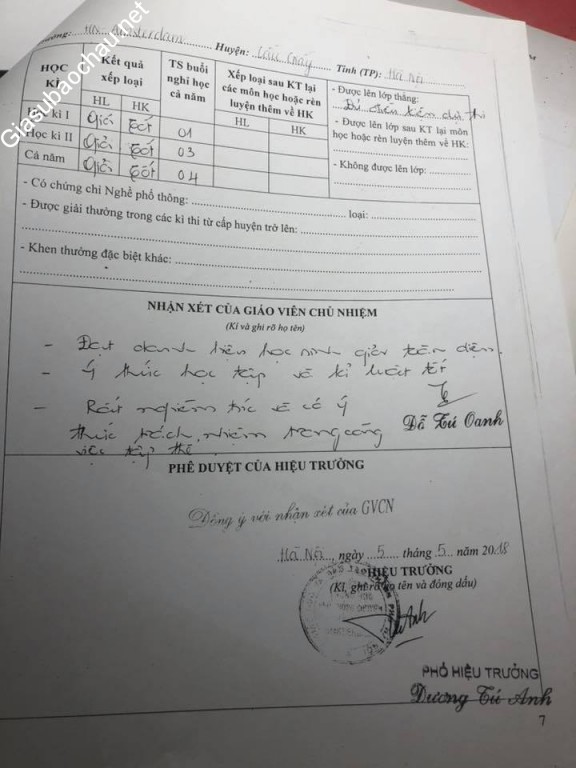 Giasubaochau.net
Huyện: Cầu Giấy Tỉnh (TP): Hà Nội
HỌC KÌ
Kết quả xếp loại
TS buổi nghỉ học cả năm
Xếp loại sau KT lại các môn học hoặc rèn luyện thêm về HK
HL HK HL HK
kì I Giỏi Tốt 01
Học kì II Giỏi Tốt 03
Cả năm Giỏi Tốt 04
- Được lên lớp thẳng:
Đủ điều kiện dự thi
- Được lên lớp sau KT lại môn
học hoặc rèn luyện thêm về HK:
- Không được lên lớp:
- Có chứng chỉ Nghề phổ thông: loại:
- Được giải thưởng trong các kì thi từ cấp huyện trở lên:
- Khen thưởng đặc biệt khác:
NHẬN XÉT CỦA GIÁO VIÊN CHỦ NHIỆM
(Kí và ghi rõ họ tên)
- Đạt danh hiệu học sinh giỏi toàn diện.
- Ý thức học tập và kỉ luật tốt
- Rất nghiêm túc và có ý
thức trách nhiệm trong công
việc tập thể.
Đỗ Tú Oanh
PHÊ DUYỆT CỦA HIỆU TRƯỞNG
Đồng ý với nhận xét của GVCN
Hà Nội, ngày 5 tháng 5 năm 2018
HIỆU TRƯỞNG
(Kí, ghi rõ họ tên và đóng dấu)
PHÓ HIỆU TRƯỞNG
Dương Tú Anh
7